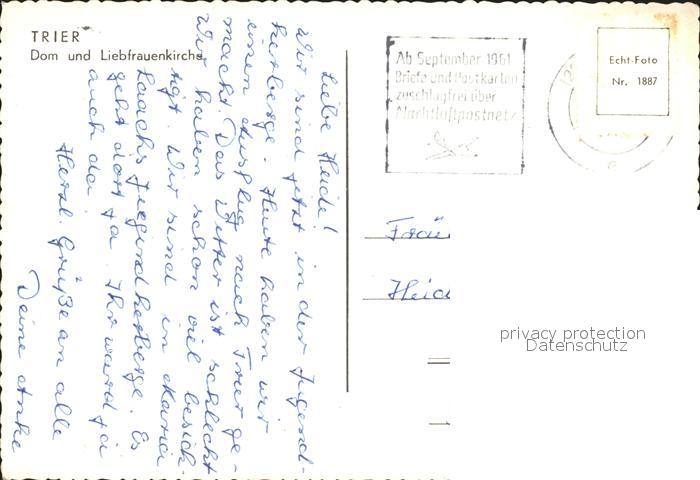 TRIER
Dom und Liebfrauenkirche
Liebe Heide!
Wir sind jetzt in der Jugend-
herberge. Heute haben wir
einen Ausflug nach Trier ge-
macht. Das Wetter ist schlecht
Wir haben schon viel besich-
tigt. Wir sind in Maria
Laachs Jugendherberge. Es
geht dort ja. Ihr ward ja
auch da.
Herzl. Grüße an alle
Deine Anke
Ab September 1961
Briefe und Postkarten
zuschlagfrei über
Nachtluftpostnetz
Echt-Foto
Nr. 1887
Fräu
Heid
privacy protection
Datenschutz